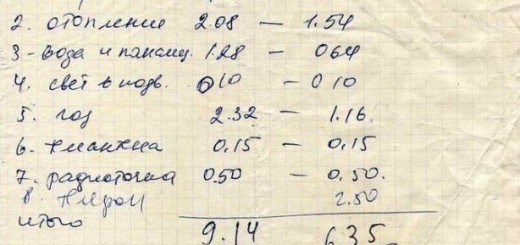 2. отопление 2.08 — 1.54
3- вода и канал. 1.28 — 064
4. свет в подв. 010 — 010
5. газ 2.32 — 1.16.
6. 0.15 — 0.15
7. радиоточка 0.50 — 0.50.
8. 2.50
итого 9.14 6.35